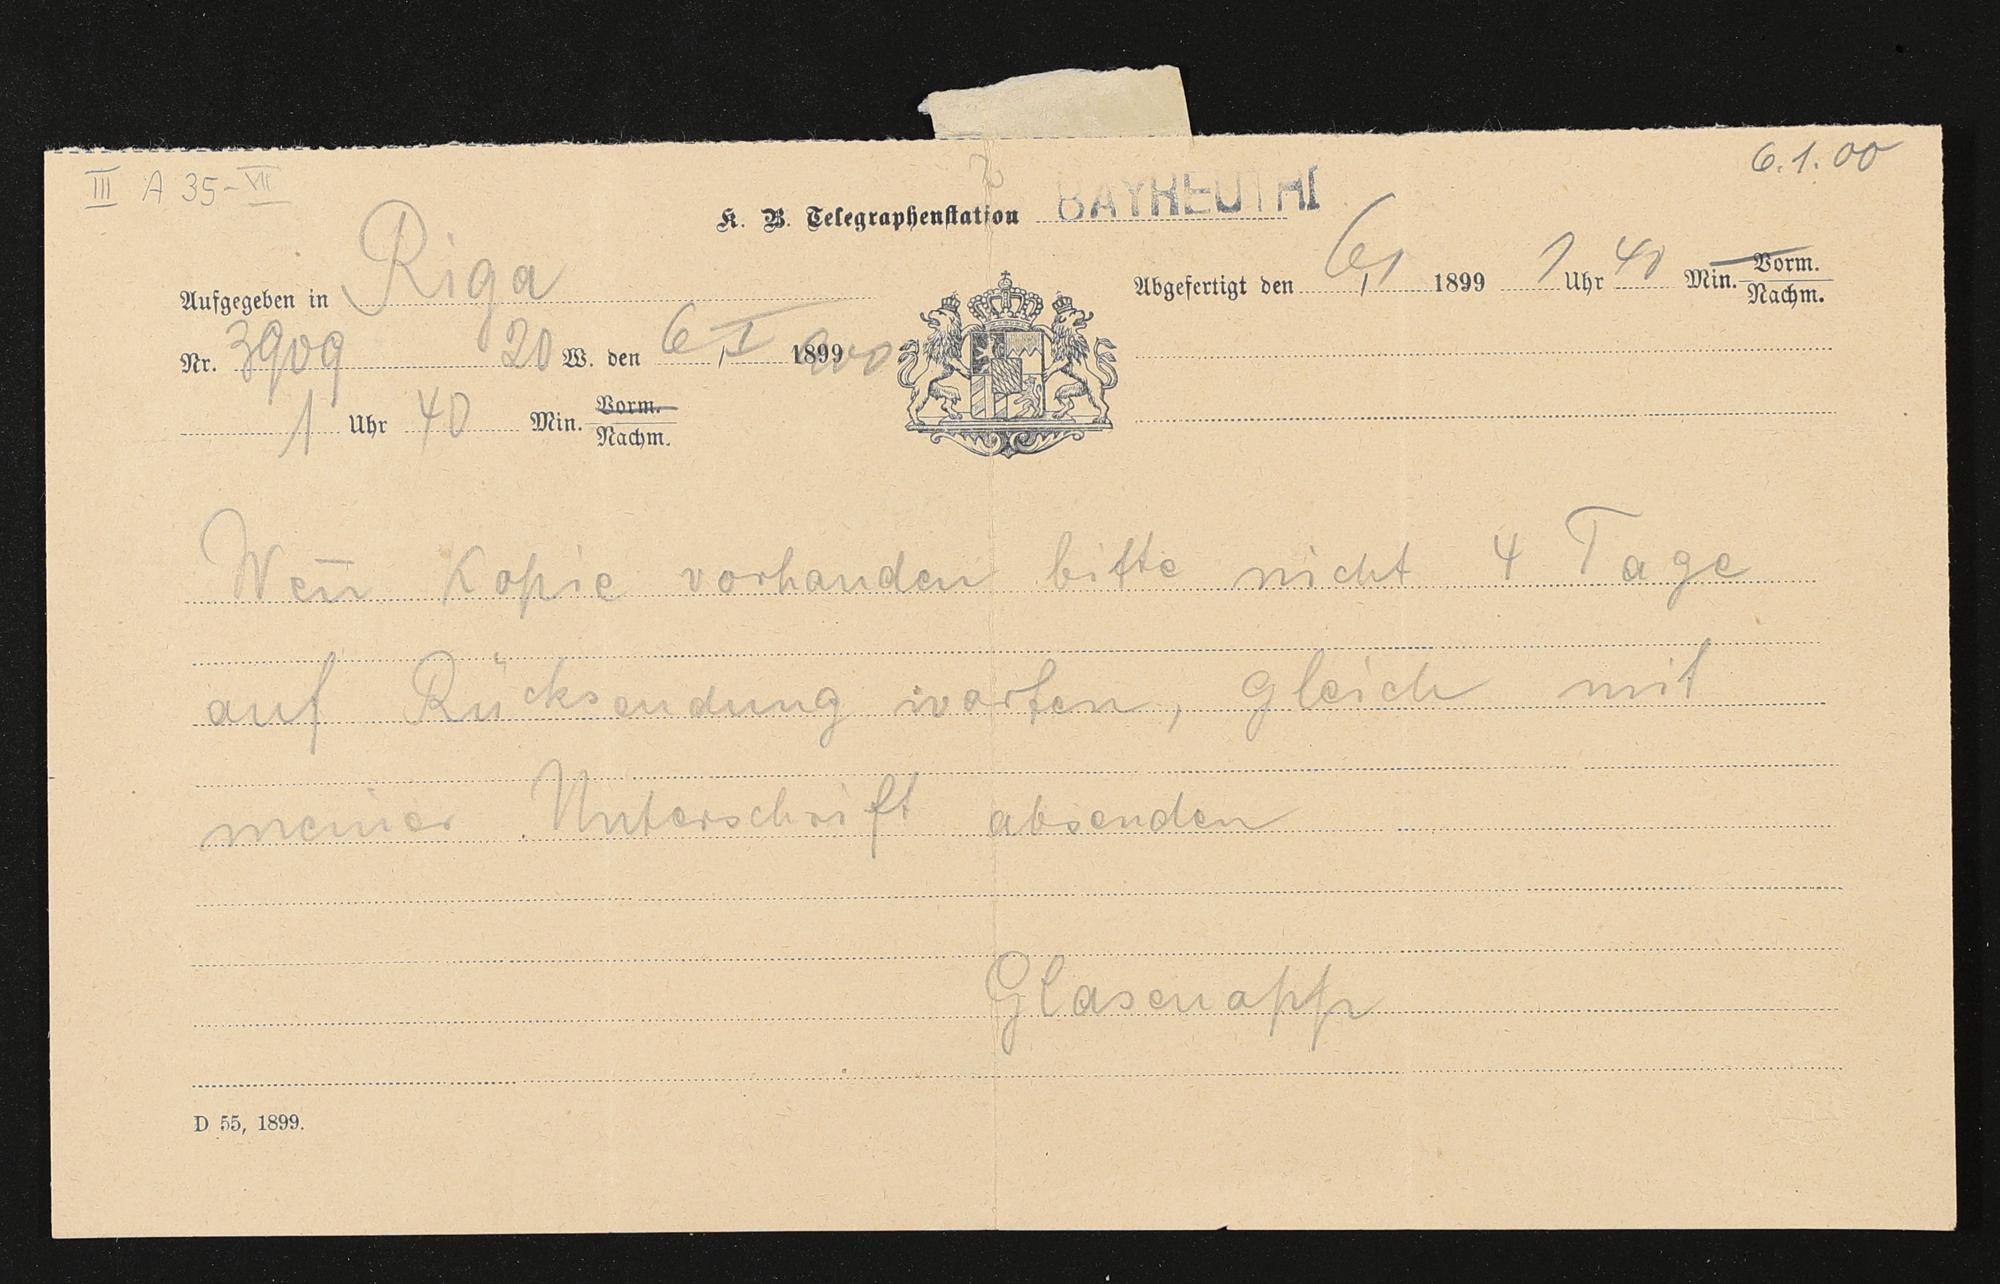 III A 35-VII
6.1.00
K. B. Telegraphenstation BAYREUTH I
Aufgegeben in Riga
Abgefertigt den 6/1 1899 1 Uhr 40 Min. Vorm. Nachm.
Nr. 3909 20 W. den 6 I 1899 900
1 Uhr 40 Min. Vorm. Nachm.
Wen̄ Kopie vorhanden bitte nicht 4 Tage
auf Rücksendung warten, gleich mit
meiner Unterschrift absenden
Glasenapp
D 55, 1899.